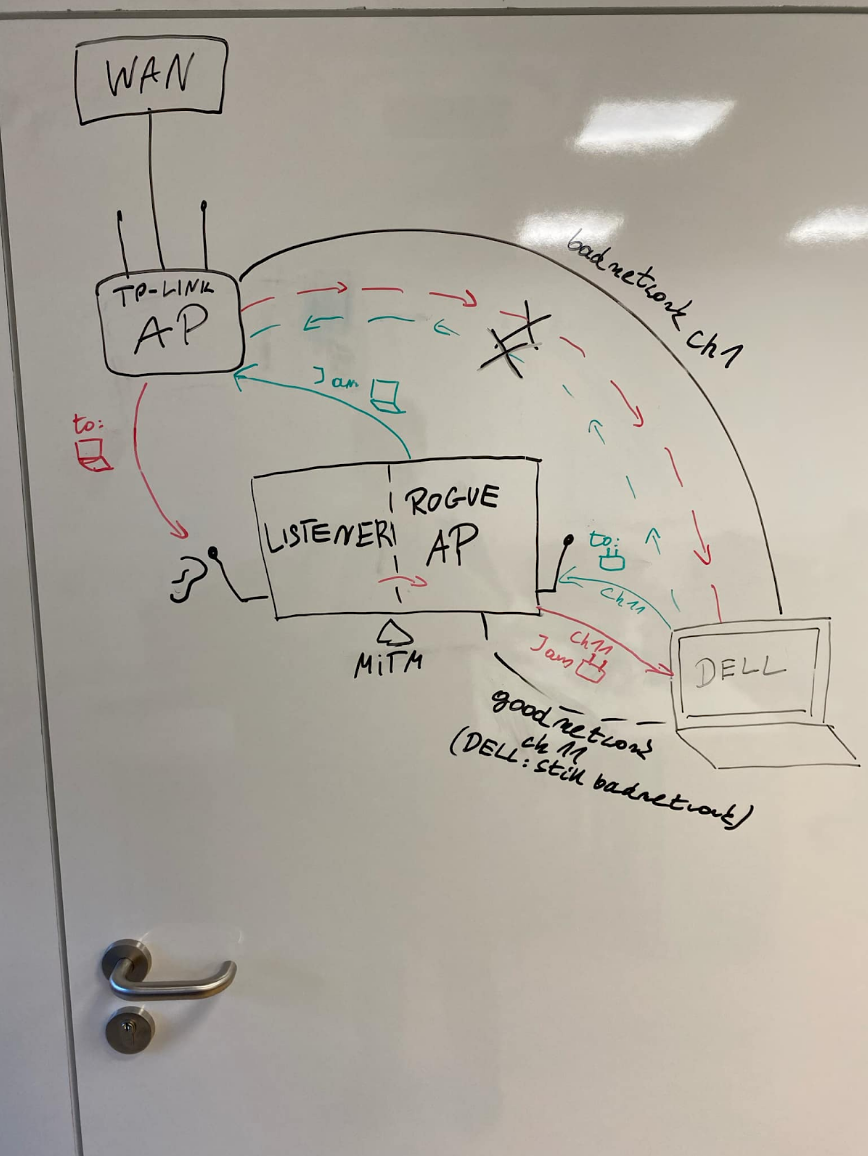 WAN
TP-LINK
AP
badnetwork ch1
Jam
to:
LISTENER
ROGUE
AP
to:
ch11
ch11
Jam
MiTM
DELL
goodnetwork
ch 11
(DELL: still badnetwork)